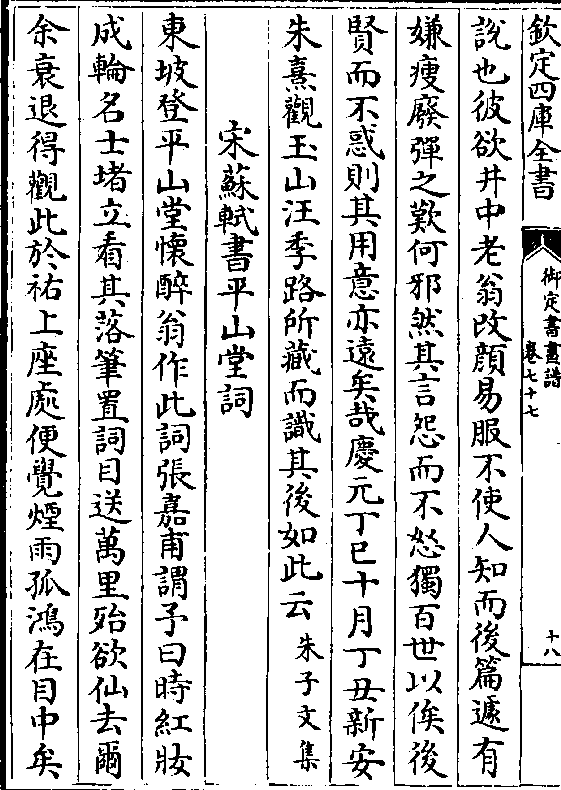 欽定四庫全書
御定書畫譜
卷七十七
十八
說也彼欲井中老翁改顔易服不使人知而後篇遽有
嫌瘦廢彈之歎何邪然其言怨而不怒獨百世以俟後
賢而不惑則其用意亦遠矣哉慶元丁巳十月丁丑新安
朱熹觀玉山汪季路所藏而識其後如此云 朱子文集
宋蘇軾書平山堂詞
東坡登平山堂懷醉翁作此詞張嘉甫謂予曰時紅妝
成輪名士堵立看其落筆置詞目送萬里殆欲仙去爾
余衰退得觀此於祐上座處便覺煙雨孤鴻在目中矣